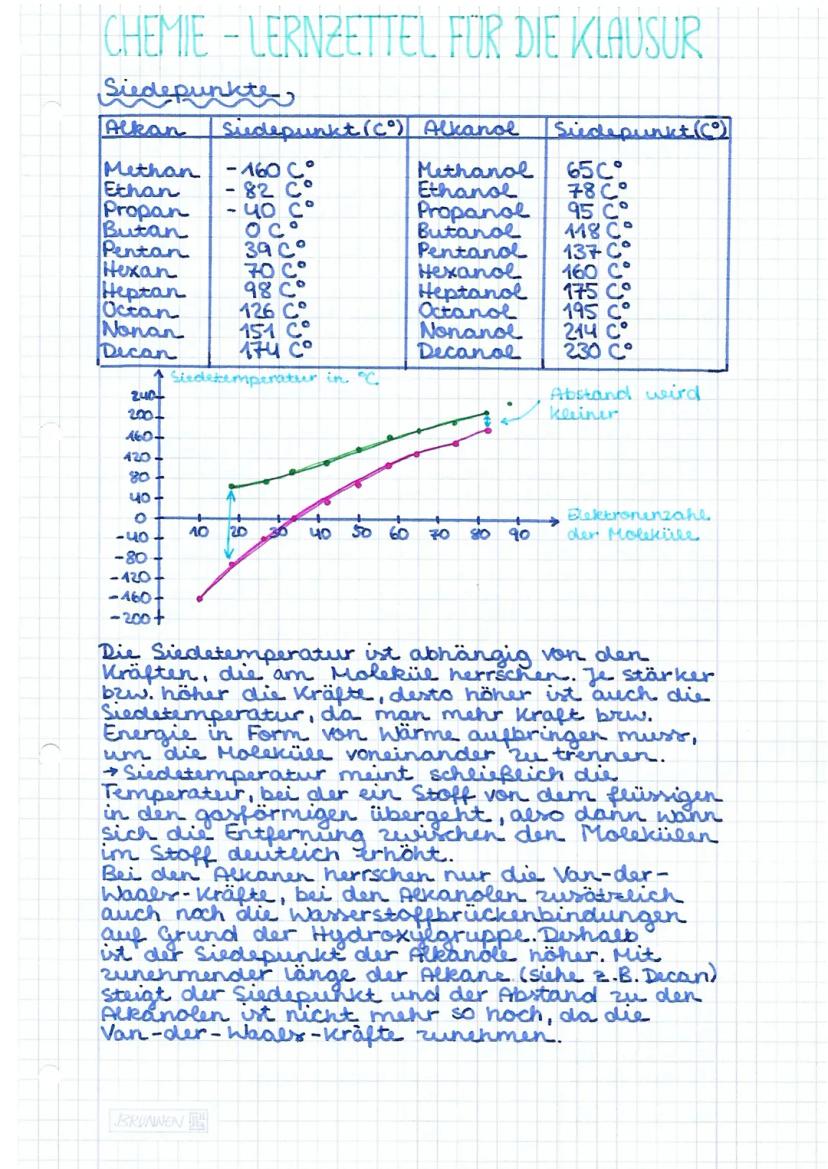 CHEMIE - LERNZETTEL FÜR DIE KLAUSUR
Siedepunkte
Alkan Siedepunkt (C°) Alkanol Siedepunkt (C°)
Methan -160 C° Methanol 65 C°
Ethan -82 C° Ethanol 78 C°
Propan -40 C° Propanol 95 C°
Butan 0 C° Butanol 118 C°
Pentan 39 C° Pentanol 137 C°
Hexan 70 C° Hexanol 160 C°
Heptan 98 C° Heptanol 175 C°
Octan 126 C° Octanol 195 C°
Nonan 151 C° Nonanol 214 C°
Decan 174 C° Decanol 230 C°
Siedetemperatur in °C
240
200
160
120
80
40
0
-40
-80
-120
-160
-200
10 20 30 40 50 60 70 80 90
Abstand wird
kleiner
Elektronenzahl
der Moleküle
Die Siedetemperatur ist abhängig von den
Kräften, die am Molekül herrschen. Je stärker
bzw. höher die Kräfte, desto höher ist auch die
Siedetemperatur, da man mehr Kraft bzw.
Energie in Form von Wärme aufbringen muss,
um die Moleküle voneinander zu trennen.
→ Siedetemperatur meint schließlich die
Temperatur, bei der ein Stoff von dem flüssigen
in den gasförmigen übergeht, also dann wann
sich die Entfernung zwischen den Molekülen
im Stoff deutlich erhöht.
Bei den Alkanen herrschen nur die Van-der-
Waals-Kräfte, bei den Alkanolen zusätzlich
auch noch die Wasserstoffbrückenbindungen
auf Grund der Hydroxylgruppe. Deshalb
ist der Siedepunkt der Alkanole höher. Mit
zunehmender Länge der Alkane (siehe z.B. Decan)
steigt der Siedepunkt und der Abstand zu den
Alkanolen ist nicht mehr so hoch, da die
Van-der-Waals-Kräfte zunehmen.
BRUNNEN